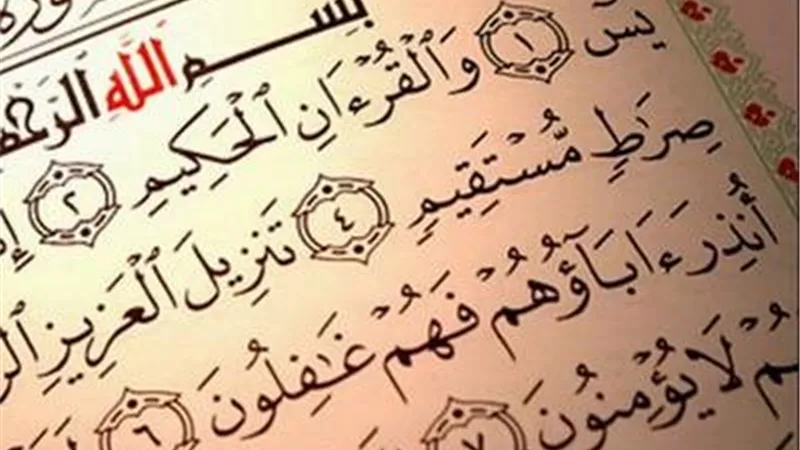 بِسْمِ اللَّهِ الرَّحْمَ
يسٓ ١ وَٱلْقُرْءَانِ ٱلْحَكِيمِ ٢ إِ
صِرَٰطٍ مُّسْتَقِيمٍ ٤ تَنزِيلَ ٱلْعَزِيزِ ٱلر
أُنذِرَ ءَابَآؤُهُمْ فَهُمْ غَٰفِلُونَ ٦
هُمْ لَا يُؤْمِنُونَ ٧